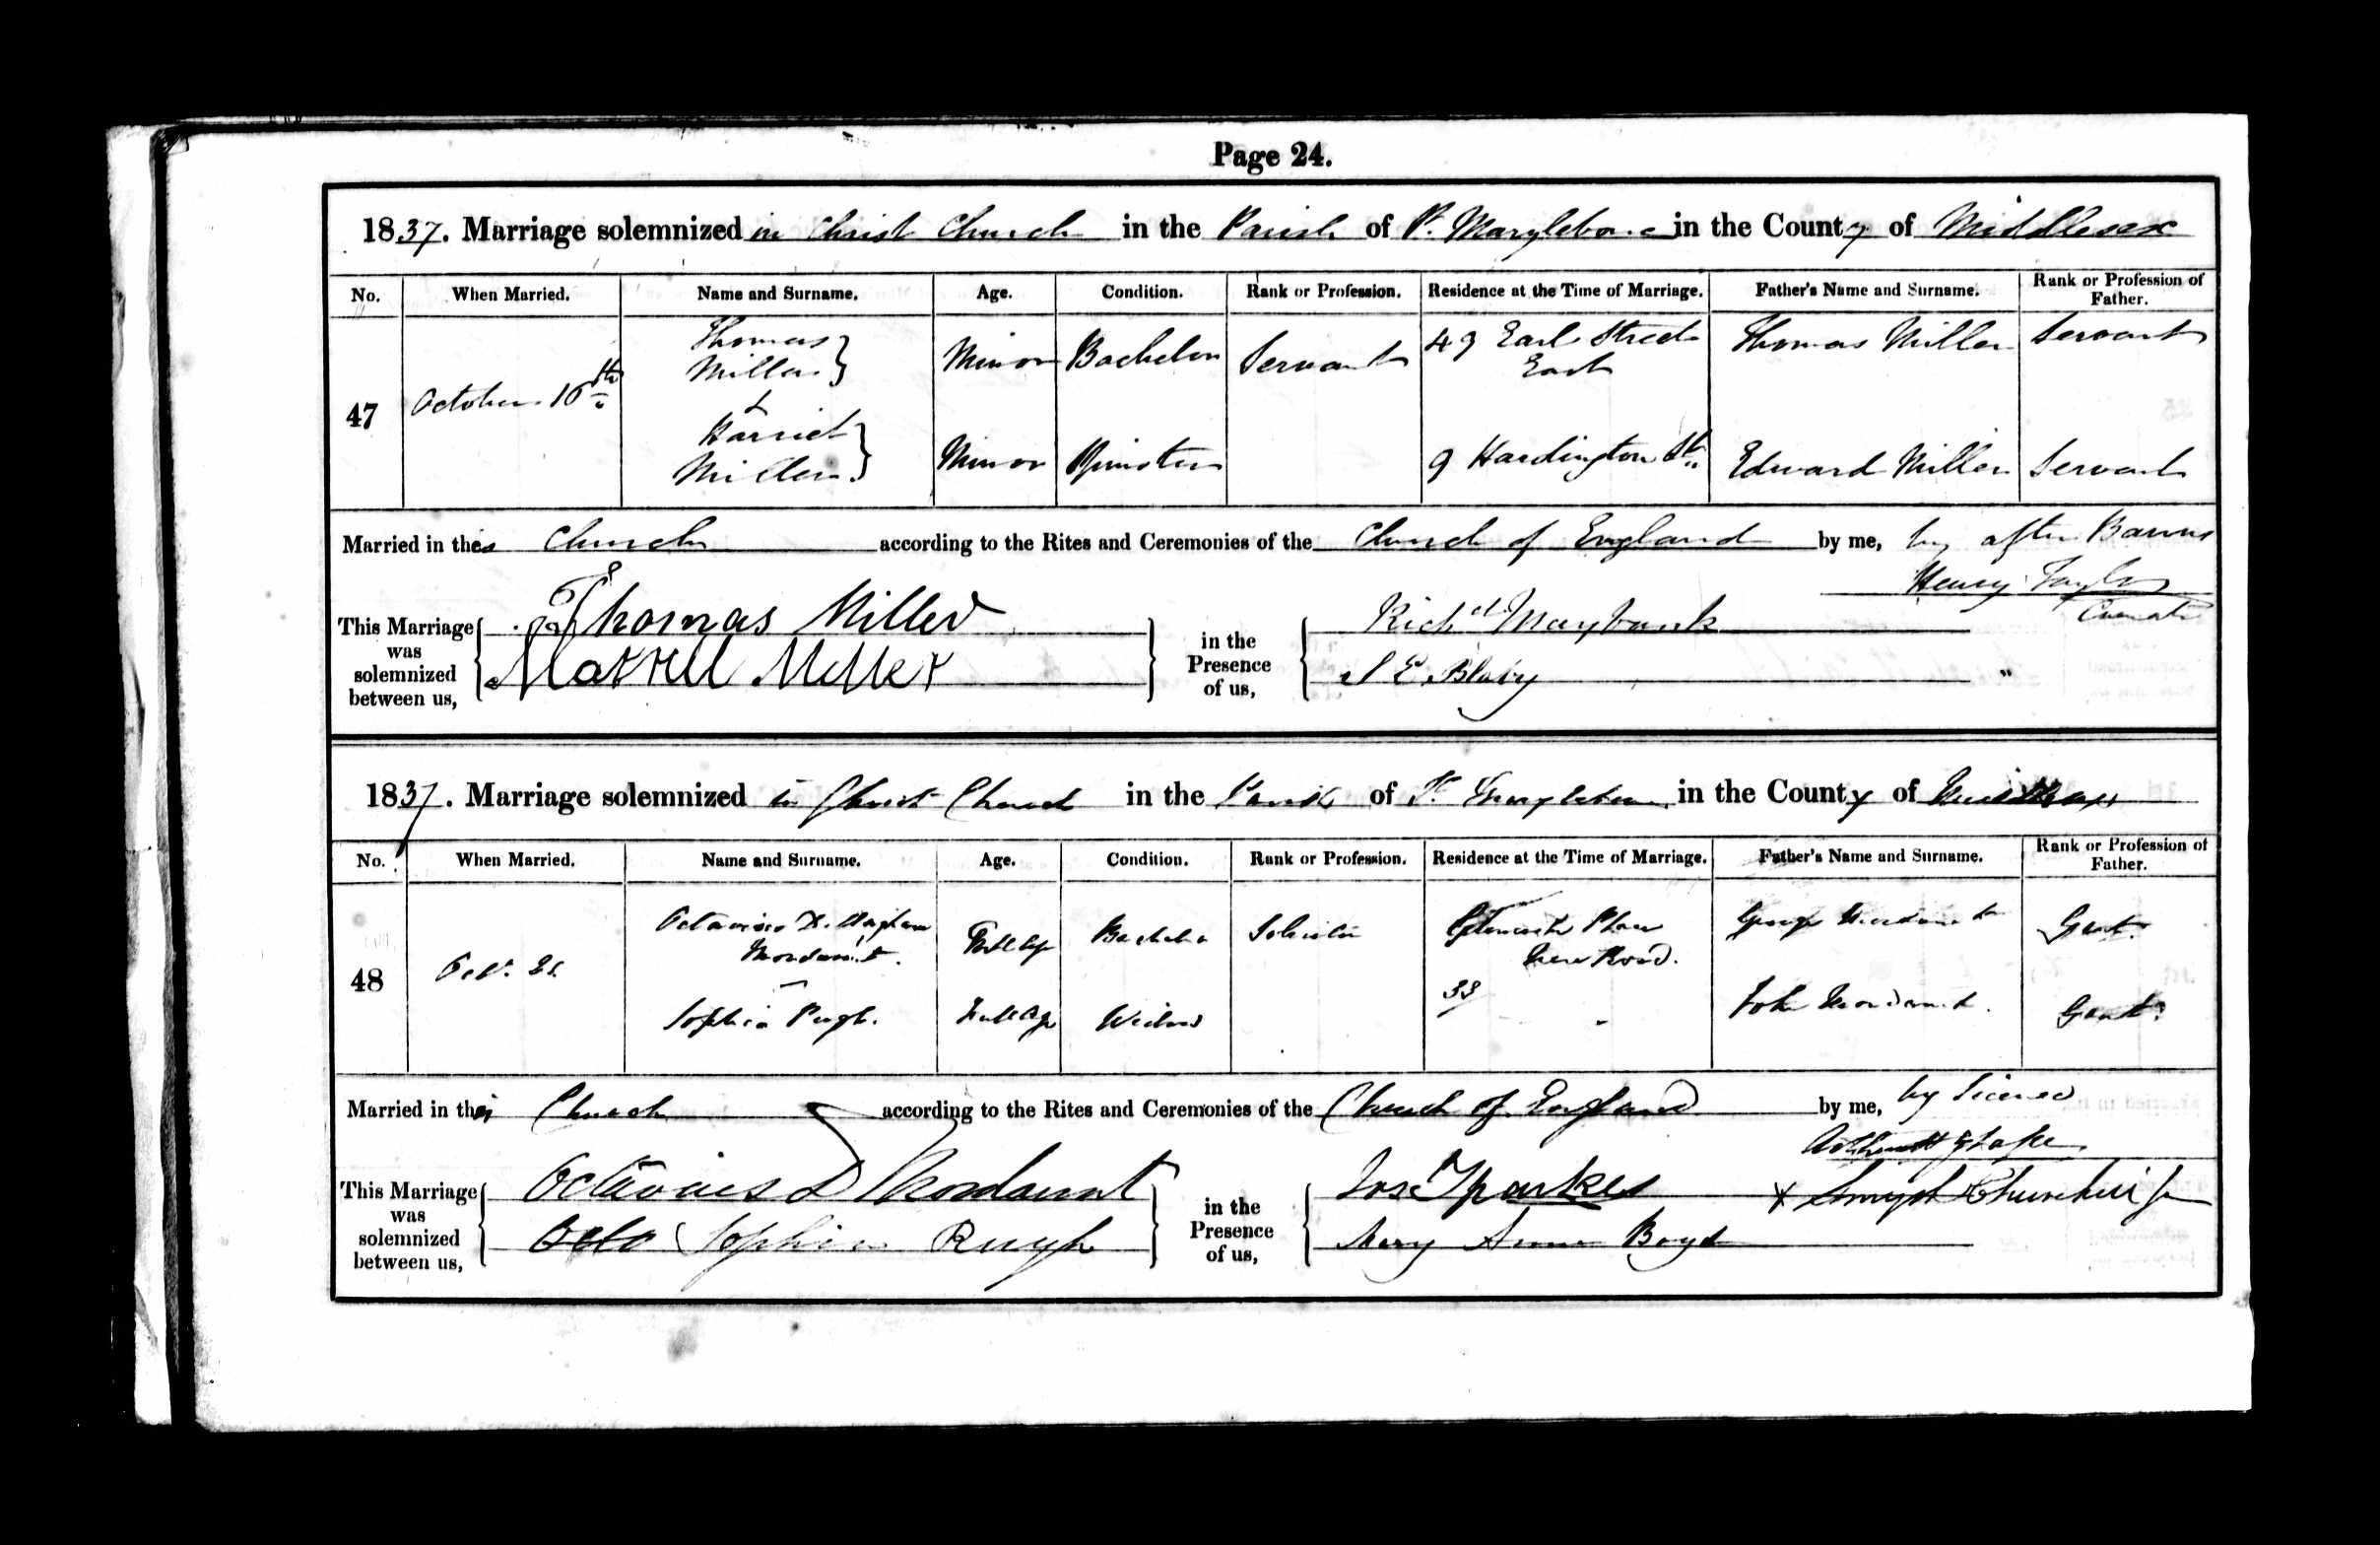 Page 24.
1837. Marriage solemnized in Christ Church in the Parish of St. Marylebone in the County of Middlesex
No. When Married. Name and Surname. Age. Condition. Rank or Profession. Residence at the Time of Marriage. Father's Name and Surname. Rank or Profession of Father.
47 October 16th Thomas Miller Minor Bachelor Servant 49 Earl Street East Thomas Miller Servant
&
Harriet Miller Minor Spinster 9 Hardington St. Edward Miller Servant
Married in this Church according to the Rites and Ceremonies of the Church of England by me, by after Banns
Henry Taylor
Curate
This Marriage was solemnized between us, Thomas Miller in the Presence of us, Richd Maybank
Harriet Miller S E Blaby "
1837. Marriage solemnized in Christ Church in the Parish of St. Marylebone in the County of Middlesex
No. When Married. Name and Surname. Age. Condition. Rank or Profession. Residence at the Time of Marriage. Father's Name and Surname. Rank or Profession of Father.
48 Oct. 21. Octavius Mordaunt. Full Age Bachelor Solicitor Place New Road. George Mordaunt Gent.
Sophia Pugh. Full Age Widow 33 " John Mordaunt. Gent.
Married in this Church according to the Rites and Ceremonies of the Church of England by me, by License
This Marriage was solemnized between us, Octavius D Mordaunt in the Presence of us, Jos Sparkes
Octo Sophia Pugh Mary Anne Boyd